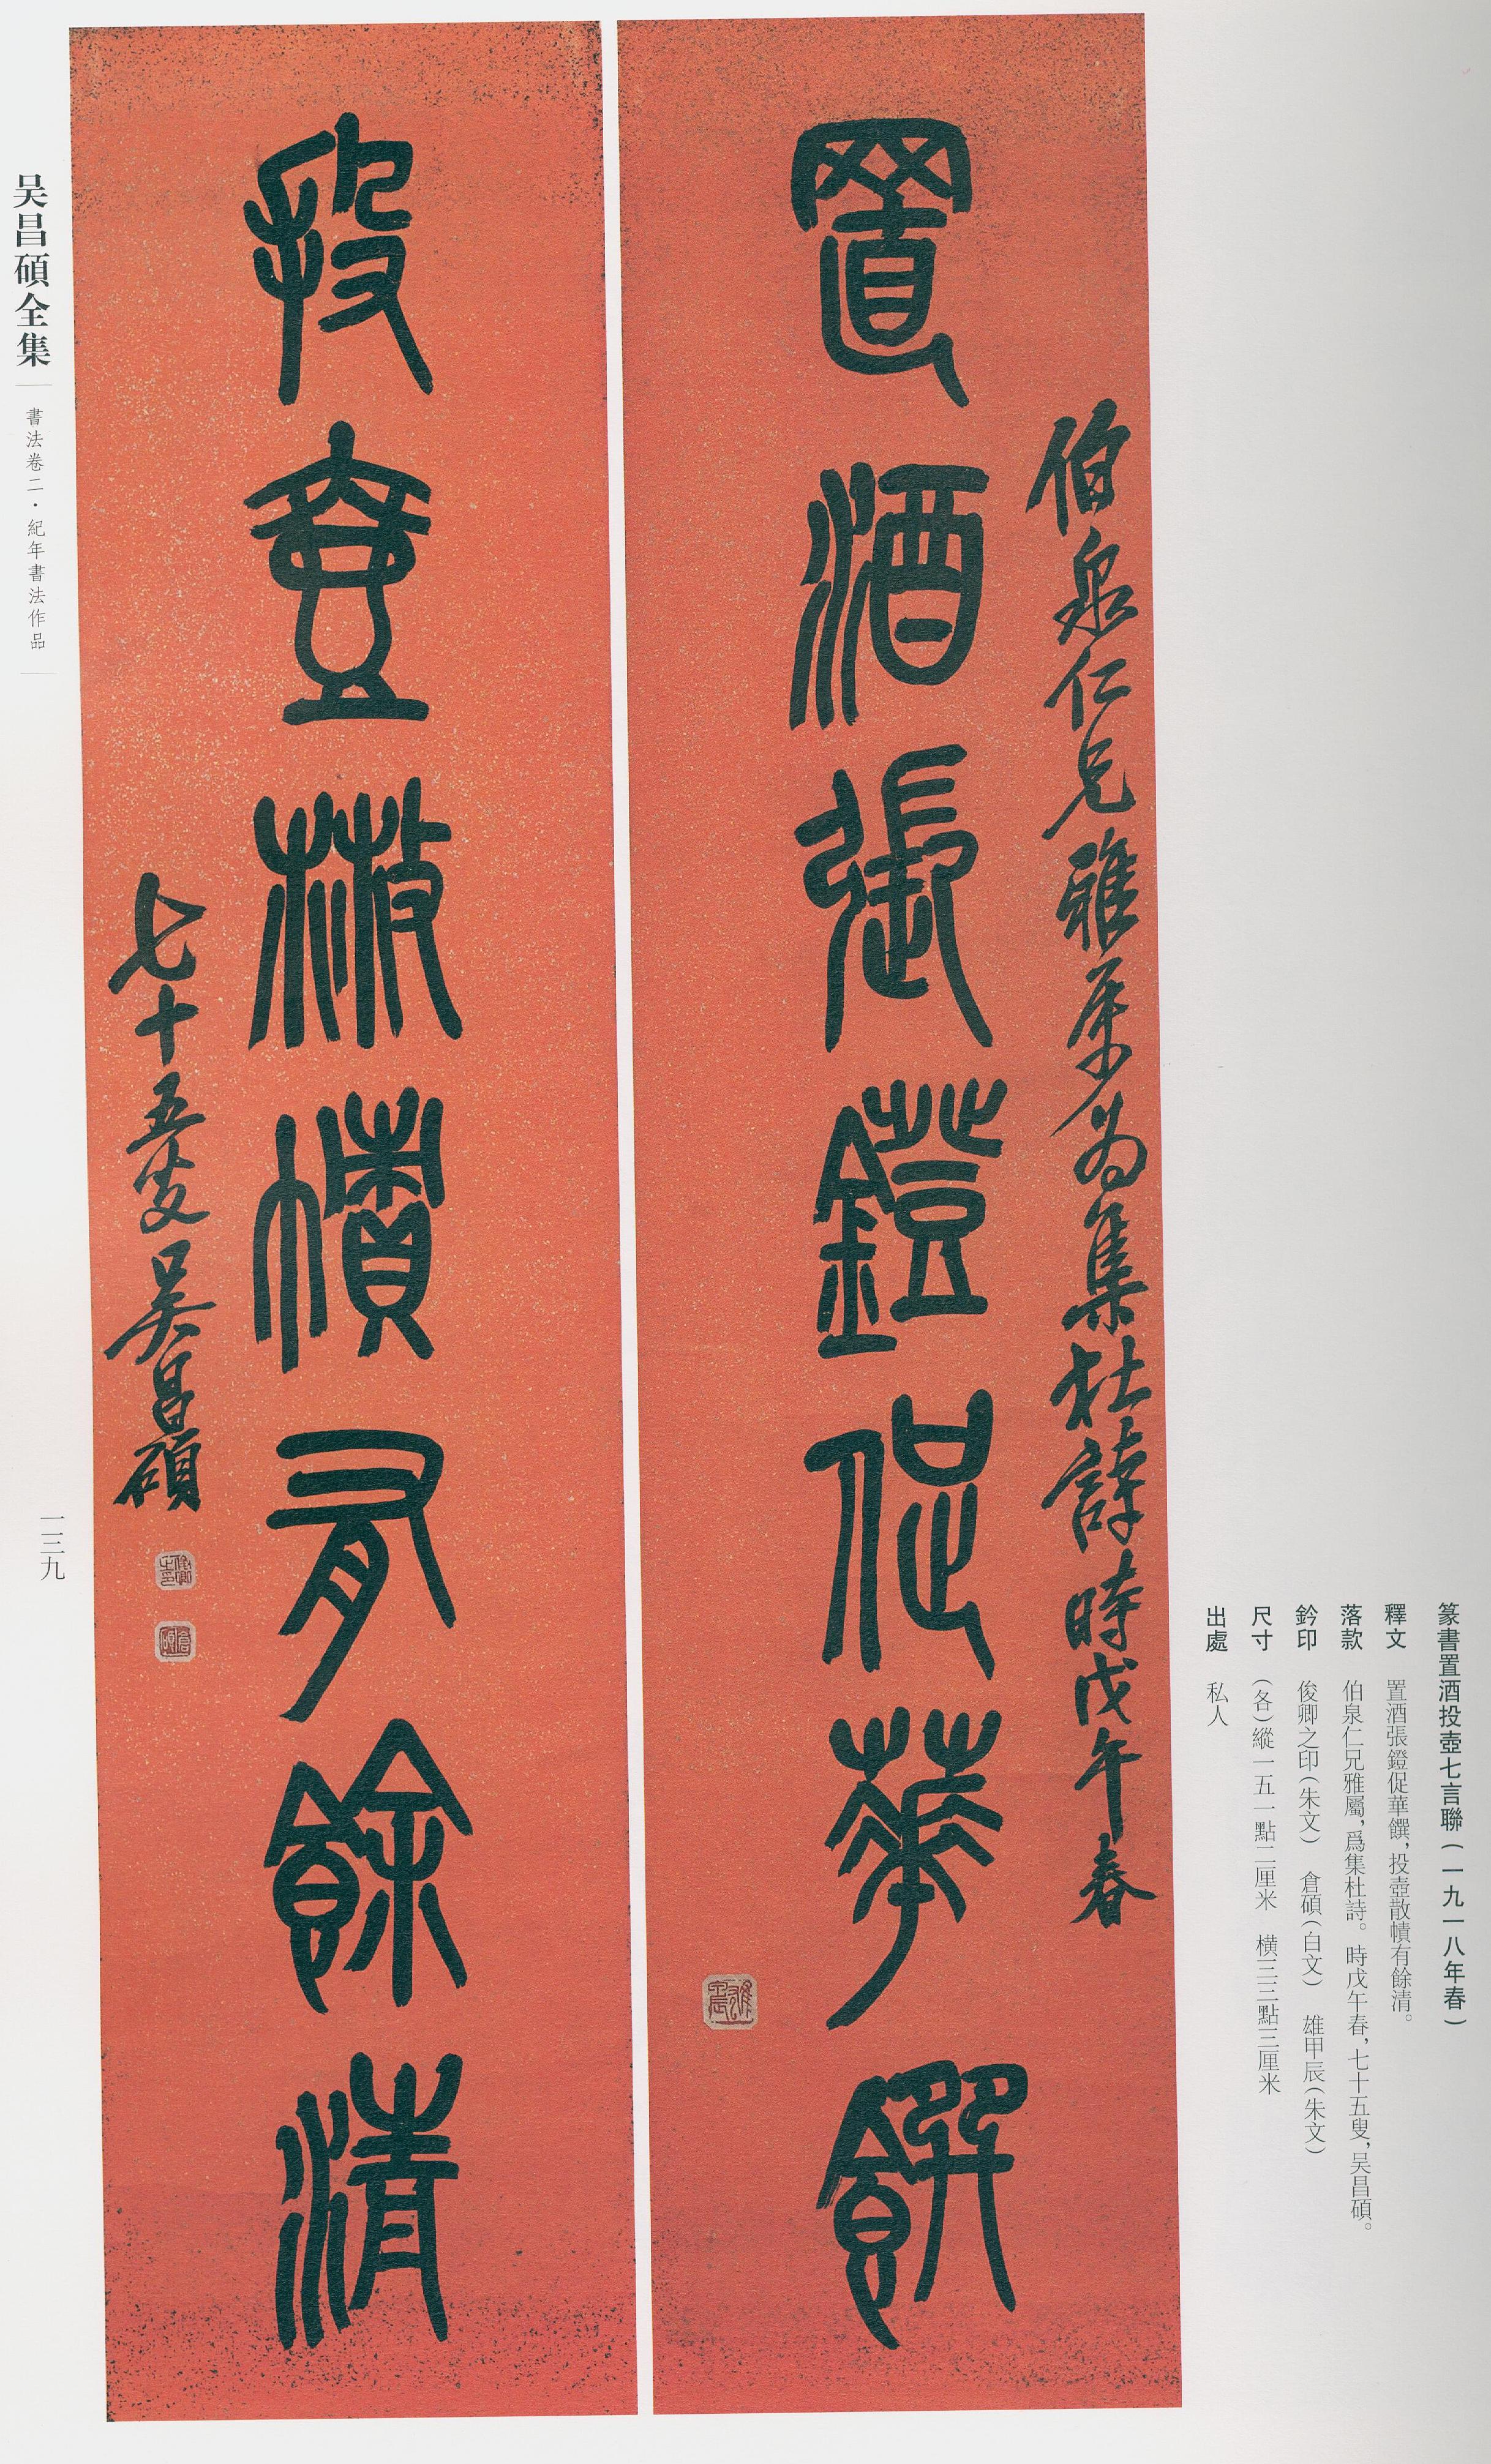 篆書置酒投壺七言聯（一九一八年春）
釋文　置酒張鐙促華饌，投壺散幘有餘清。
落款　伯泉仁兄雅屬，爲集杜詩。時戊午春，七十五叟，吴昌碩。
鈐印　俊卿之印（朱文）　倉碩（白文）　雄甲辰（朱文）
尺寸　（各）縱一五一點二厘米　橫三三點三厘米
出處　私人
伯泉仁兄雅屬為集杜詩時戊午春
置酒張鐙促華饌
雄甲辰
投壺散幘有餘清
七十五叟吴昌碩
俊卿之印
倉碩
吴昌碩全集
書法卷二・紀年書法作品
一三九